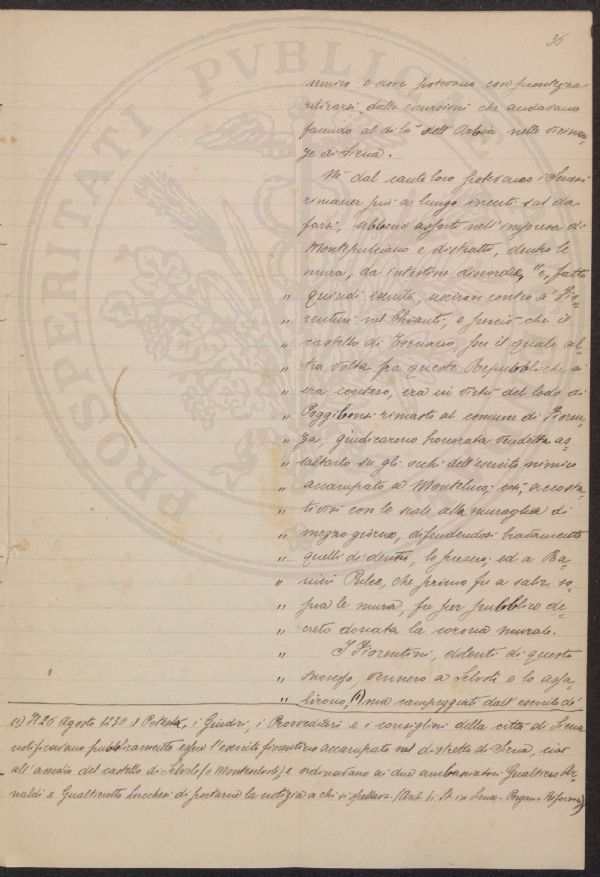 36
nemico e dove potevano con prontezza
ritirarsi dalle escursioni che andavano
facendo al di là dell'Arbia nelle vicinan-
ze di Siena.
Nè dal canto loro potevano i Senesi
rimaner più a lungo incerti sul da
farsi, sebbene assorti nell'impresa di
Montepulciano e distratti, dentro le
mura, da intestine discordie, "e, fatto
" quindi esercito, usciron contro a' Fio-
" rentini nel Chianti, e perciò che il
" castello di Tornano, per il quale al-
" tra volta fra queste Repubbliche si
" era conteso, era in virtù del lodo di
" Poggibonsi rimasto al comune di Fioren-
" za, giudicarono honorata vendetta as-
" saltarlo su gli occhi dell'esercito nimico
" accampato a Monteluco; così, accosta-
" tivisi con le scale alla muraglia di
" mezzo giorno, difendendosi bravamente
" quelli di dentro, lo presero; ed a Ba-
" nini Pulce, che primo fu a salir so-
" pra le mura, fu per pubblico de-
" creto donata la corona murale.
" I Fiorentini, dolenti di questo
" successo, vennero a Selvoli e lo assa-
" lirono, (1) ma campeggiati dall'esercito de'
(1) Il 20 Agosto 1230 il Potestà, i Giudici, i Provveditori e i consiglieri della città di Siena
notificavano pubblicamente esser l'esercito fiorentino accampato nel distretto di Siena, cioè
all'assedio del castello di Selvoli (o Monteselvoli) e ordinavano ai due ambasciatori Gualtiero Ar-
naldi e Gualtierotto Lucchesi di portarne la notizia a chi si spettava. (Arch. di St. in Siena - Pergam. Riformag.)
PROSPERITATI PVBLICAE